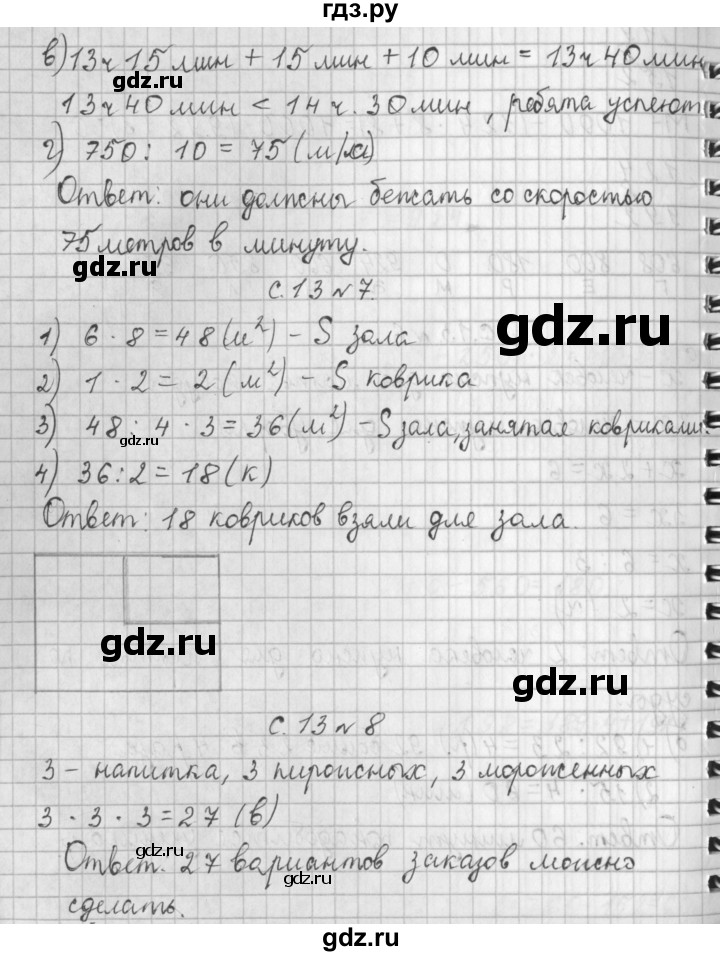 гдз.ру
в) 13ч 15 мин + 15 мин + 10 мин = 13ч 40 мин
gdz.ru
13ч 40 мин < 14 ч. 30 мин, ребята успеют
г) 750 : 10 = 75 (м/м)
Ответ: они должны бежать со скоростью
75 метров в минуту.
gdz.ru
с. 13 № 7.
gdz.ru
1) 6 · 8 = 48 (м²) – S зала
2) 1 · 2 = 2 (м²) – S коврика
3) 48 : 4 · 3 = 36 (м²) – S зала, занятая ковриками.
gdz.ru
4) 36 : 2 = 18 (к)
gdz.ru
Ответ: 18 ковриков взяли для зала.
gdz.ru
gdz.ru
с. 13 № 8
3 – напитка, 3 пирожных, 3 мороженных
3 · 3 · 3 = 27 (в)
gdz.ru
Ответ. 27 вариантов заказов можно
gdz.ru
сделать.
gdz.ru